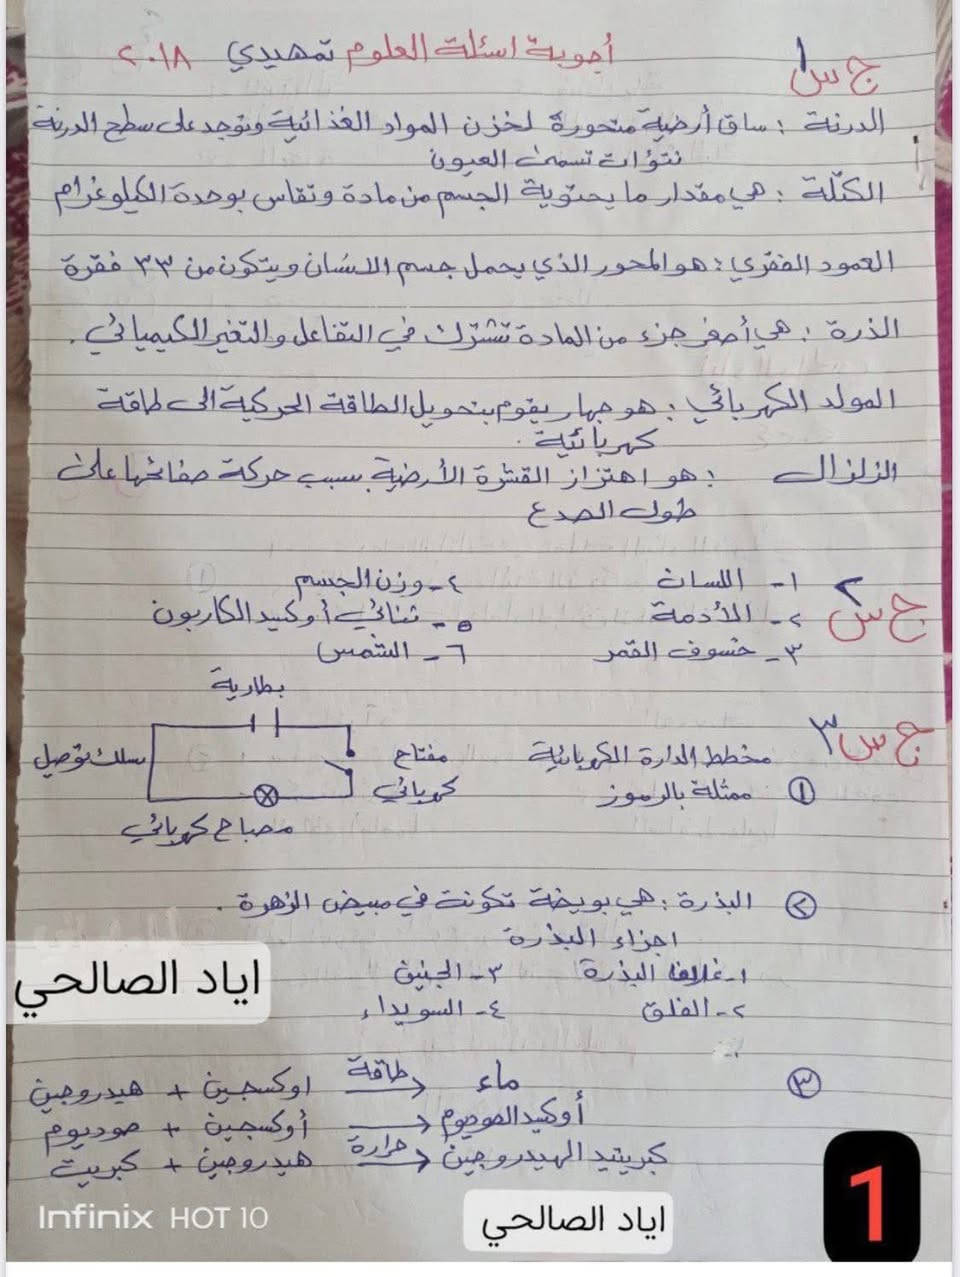 أجوبة اسئلة العلوم تمهيدي ٢٠١٨
ج س١
أ
الدرنة : ساق أرضية متحورة لخزن المواد الغذائية وتوجد على سطح الدرنة
نتؤات تسمى العيون
الكتلة : هي مقدار ما يحتوية الجسم من مادة وتقاس بوحدة الكيلوغرام
العمود الفقري : هو المحور الذي يحمل جسم الانسان ويتكون من ٣٣ فقرة
الذرة : هي أصغر جزء من المادة تشترك في التفاعل والتغير الكيميائي .
المولد الكهربائي : هو جهاز يقوم بتحويل الطاقة الحركية الى طاقة
كهربائية .
الزلزال : هو اهتزاز القشرة الأرضية بسبب حركة صفائحها على
طول الصدع
ج س٢
١- اللسان ٤- وزن الجسم
٢- الأدمة ٥- ثنائي أوكسيد الكاربون
٣- خسوف القمر ٦- الشمس
ج س٣
① مخطط الدارة الكهربائية
ممثلة بالرموز
بطارية
مفتاح
كهربائي
سلك توصيل
مصباح كهربائي
② البذرة : هي بويضة تكونت في مبيض الزهرة .
اجزاء البذرة
١- غلاف البذرة ٣- الجنين
٢- الفلق ٤- السويداء
③ ماء ← طاقة اوكسجين + هيدروجين
أوكسيد الصوديوم ← أوكسجين + صوديوم
كبريتيد الهيدروجين ← حرارة هيدروجين + كبريت
اياد الصالحي
اياد الصالحي
1
Infinix HOT 10